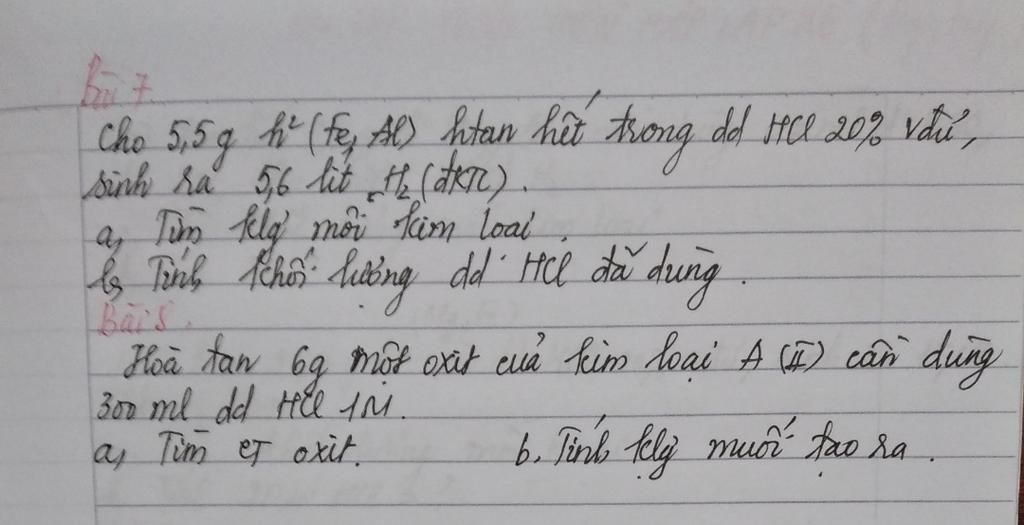 Bài 7.
Cho 5,5g h² (Fe, Al) htan hết trong dd HCl 20% vđủ,
sinh ra 5,6 lít H₂ (đktc).
a, Tìm klg mỗi kim loại.
b, Tính khối lượng dd HCl đã dùng.
Bài 8.
Hoà tan 6g một oxit của kim loại A (II) cần dùng
300 ml dd HCl 1M.
a, Tìm CT oxit. b, Tính klg muối tạo ra.